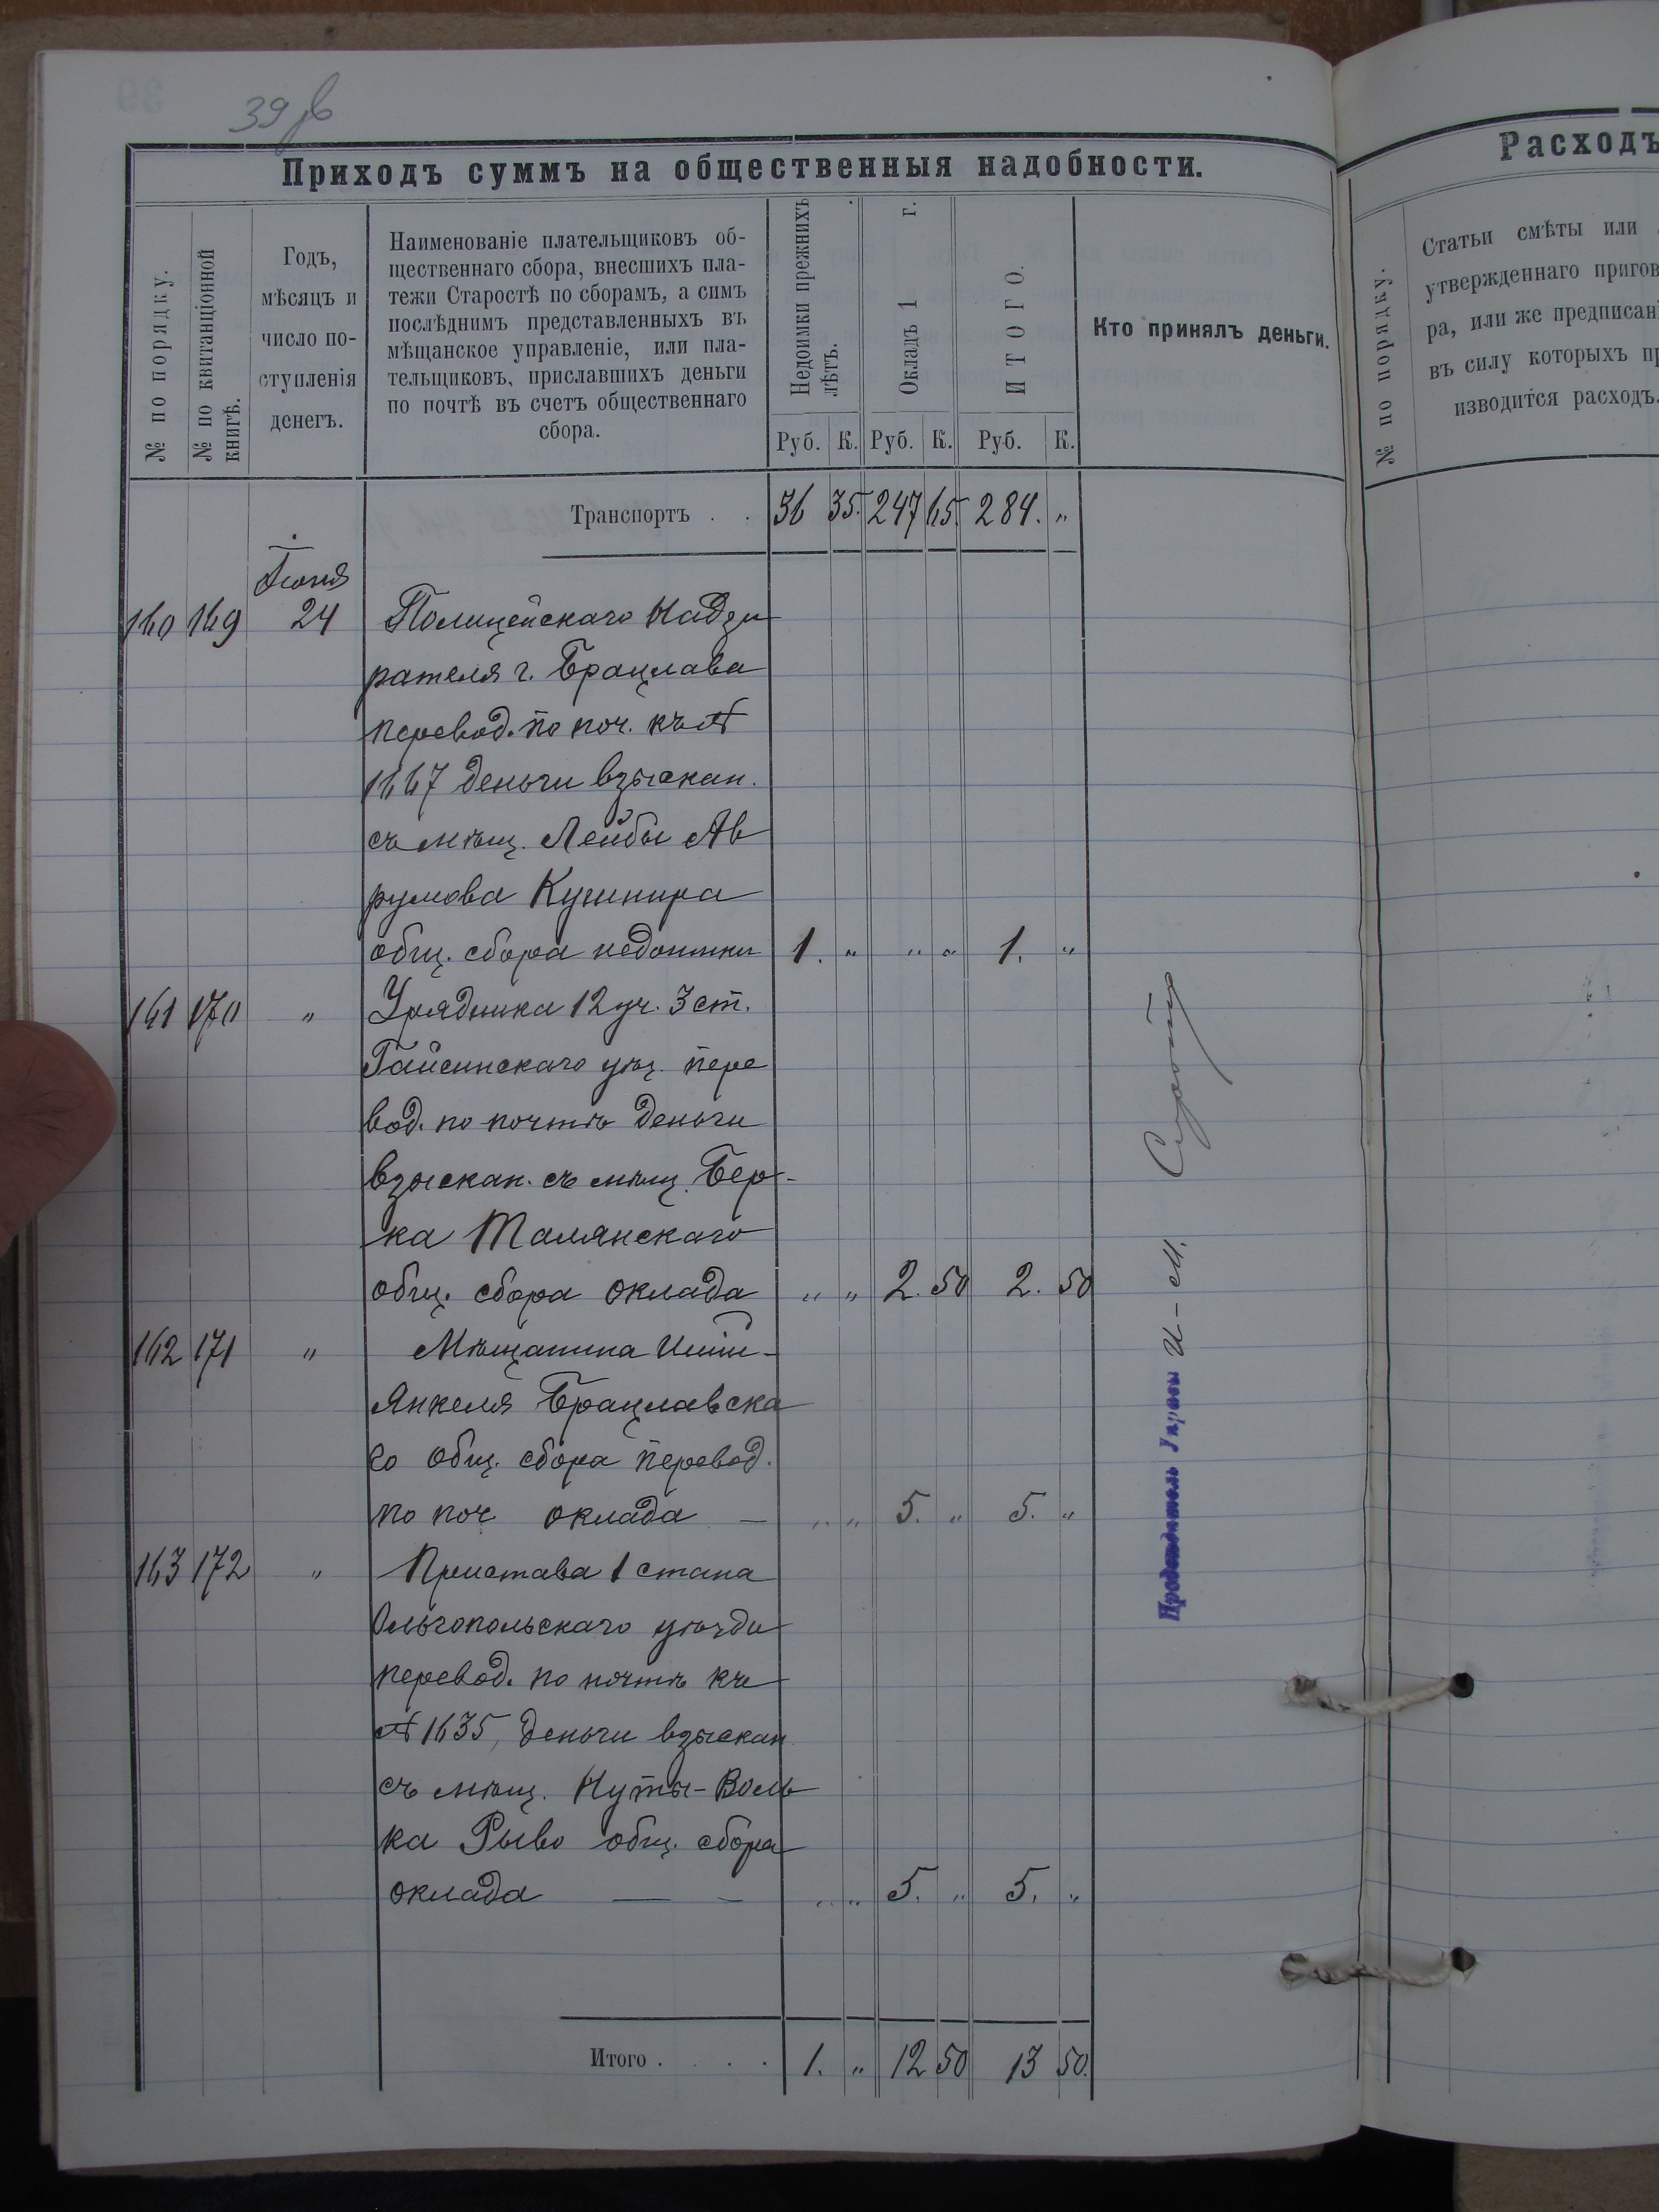 39 об
Приходъ суммъ на общественныя надобности.
№ по порядку.
№ по квитанціонной книгѣ.
Годъ,
мѣсяцъ и
число по-
ступленія
денегъ.
Наименованіе плательщиковъ об-
щественнаго сбора, внесшихъ пла-
тежи Старостѣ по сборамъ, а симъ
послѣднимъ представленныхъ въ
мѣщанское управленіе, или пла-
тельщиковъ, приславшихъ деньги
по почтѣ въ счетъ общественнаго
сбора.
Недоимки прежнихъ
лѣтъ.
Окладъ 1 г.
ИТОГО.
Кто принялъ деньги.
Руб. К. Руб. К. Руб. К.
Транспортъ . . 36 35. 247 65. 284. „
Іюня
160 169 24 Полицейскаго Надзи
рателя г. Брацлава
перевод. по поч. къ №
1667 деньги взыскан.
съ мѣщ. Лейбы Ав
румова Кушнира
общ. сбора недоимки 1. „ „ „ 1. „
161 170 „ Урядника 12 уч. 3 ст.
Гайсинскаго уѣз. пере
вод. по почтѣ деньги
взыскан. съ мѣщ. Бер-
ка Талянскаго
общ. сбора оклада „ „ 2. 50 2. 50
162 171 „ Мѣщанина
Янкеля Брацлавска
го общ. сбора перевод.
по поч оклада — „ „ 5. „ 5. „
163 172 „ Пристава 1 стана
Ольгопольскаго уѣзда
перевод. по почтѣ къ
№ 1635, деньги взыскан
съ мѣщ. Нуты-Воль
ка Рыво общ. сбора
оклада — — „ „ 5. „ 5. „
Итого . . . . 1. „ 12 50 13 50.
Предсѣдатель Управы И-М.
Расходъ
№ по порядку.
Статьи смѣты или
утвержденнаго пригов
ра, или же предписан
въ силу которыхъ пр
изводится расходъ.